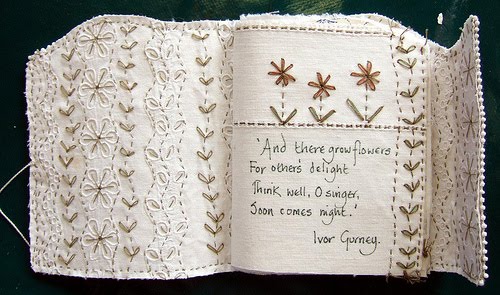 'And there grow flowers
For others' delight
Think well, O singer,
Soon comes night.'
Ivor Gurney.